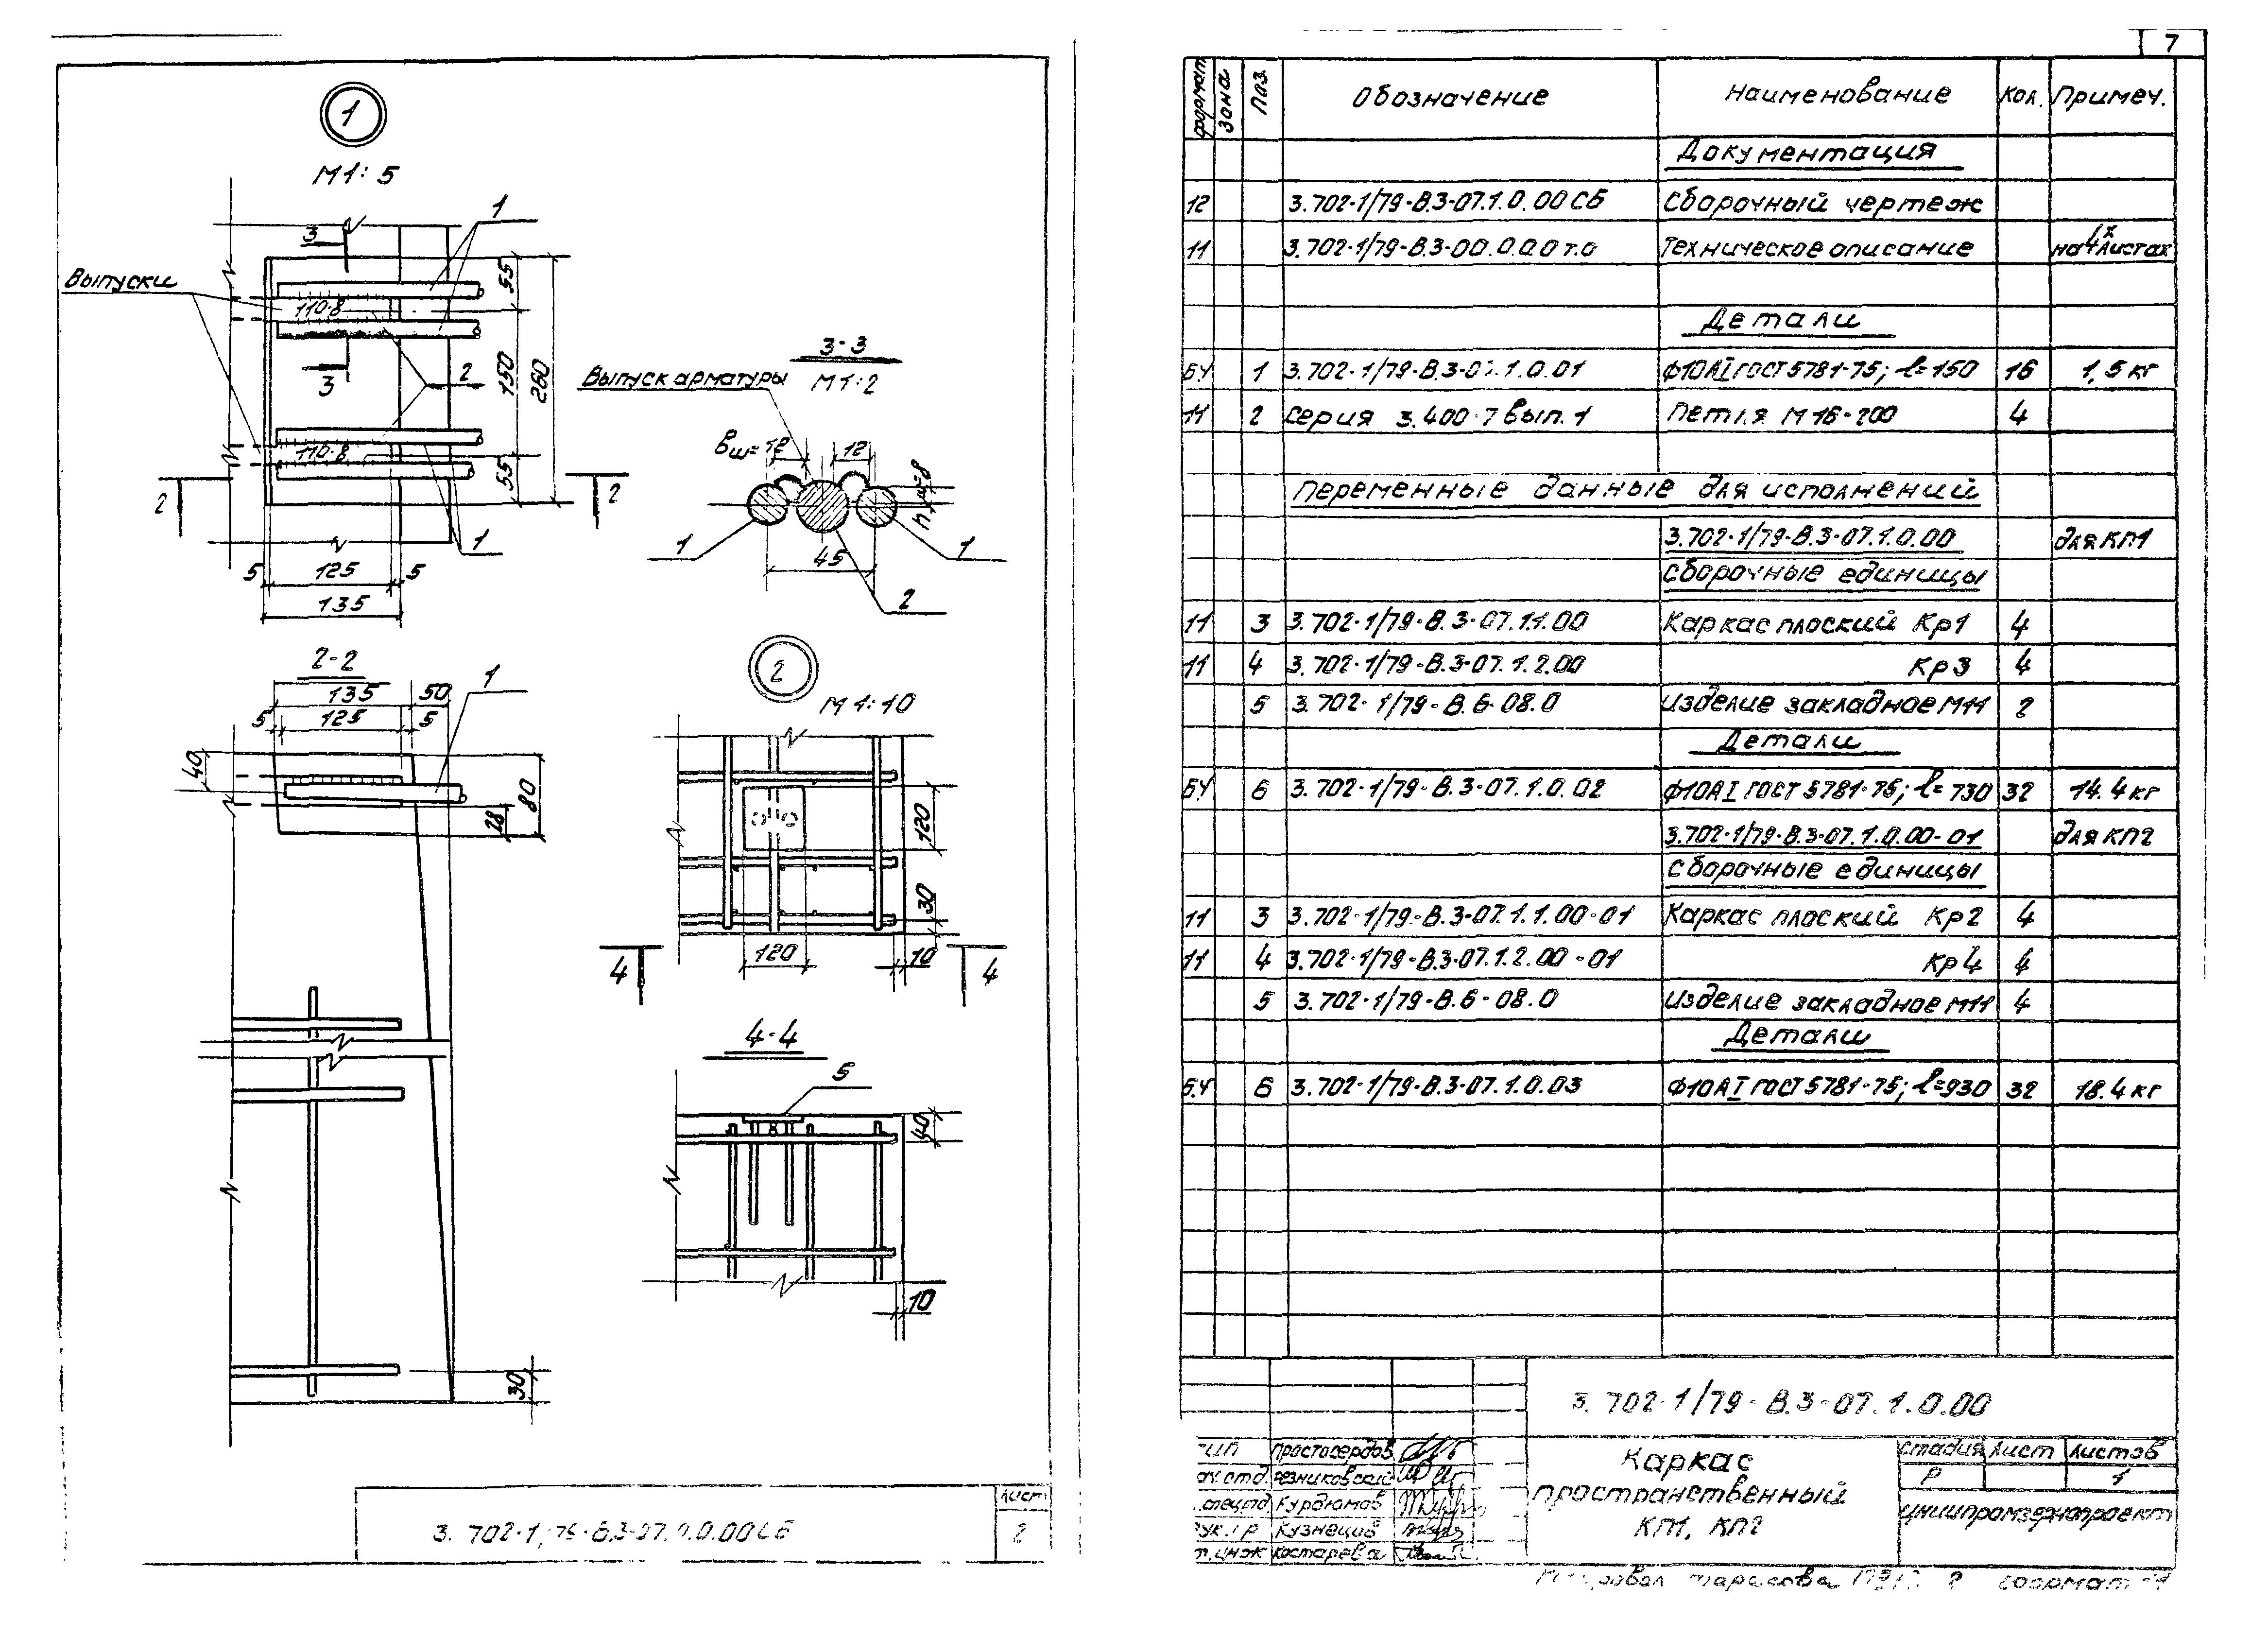 1
М 1:5
1
3
Выпуски
110-8
3
2
110-8
2
2
1
55
150
260
55
5
125
5
135
3-3
М 1:2
Выпуск арматуры
вш=12
12
hш=8
1
45
1
2
2-2
135
50
1
5
125
5
40
80
28
30
2
М 1:10
120
30
120
10
4
4
4-4
5
40
10
3.702-1/79-В.3-07.1.0.00СБ
Лист
2
7
Формат
Зона
Поз.
Обозначение
Наименование
Кол.
Примеч.
Документация
12 3.702-1/79-В.3-07.1.0.00СБ Сборочный чертеж
11 3.702-1/79-В.3-00.0.0.0 т.о Техническое описание на 4х листах
Детали
БЧ 1 3.702-1/79-В.3-07.1.0.01 Ф10АI ГОСТ 5781-75; ℓ=150 16 1,5 кг
11 2 серия 3.400-7 вып.1 Петля М16-200 4
Переменные данные для исполнений
3.702-1/79-В.3-07.1.0.00 для КП1
Сборочные единицы
11 3 3.702-1/79-В.3-07.1.1.00 Каркас плоский Кр1 4
11 4 3.702-1/79-В.3-07.1.2.00 Кр3 4
5 3.702-1/79-В.6-08.0 Изделие закладное М11 2
Детали
БЧ 6 3.702-1/79-В.3-07.1.0.02 Ф10АI ГОСТ 5781-75; ℓ=730 32 14.4 кг
3.702-1/79-В.3-07.1.0.00-01 для КП2
Сборочные единицы
11 3 3.702-1/79-В.3-07.1.1.00-01 Каркас плоский Кр2 4
11 4 3.702-1/79-В.3-07.1.2.00-01 Кр4 4
5 3.702-1/79-В.6-08.0 Изделие закладное М11 4
Детали
БЧ 6 3.702-1/79-В.3-07.1.0.03 Ф10АI ГОСТ 5781-75; ℓ=930 32 18.4 кг
3.702-1/79-В.3-07.1.0.00
Простосердов
Резниковский
Курдюмов
Кузнецов
Костарева
Каркас
пространственный
КП1, КП2
Стадия Лист Листов
Р 1
ЦНИИпромзернопроект
Тарасова
формат